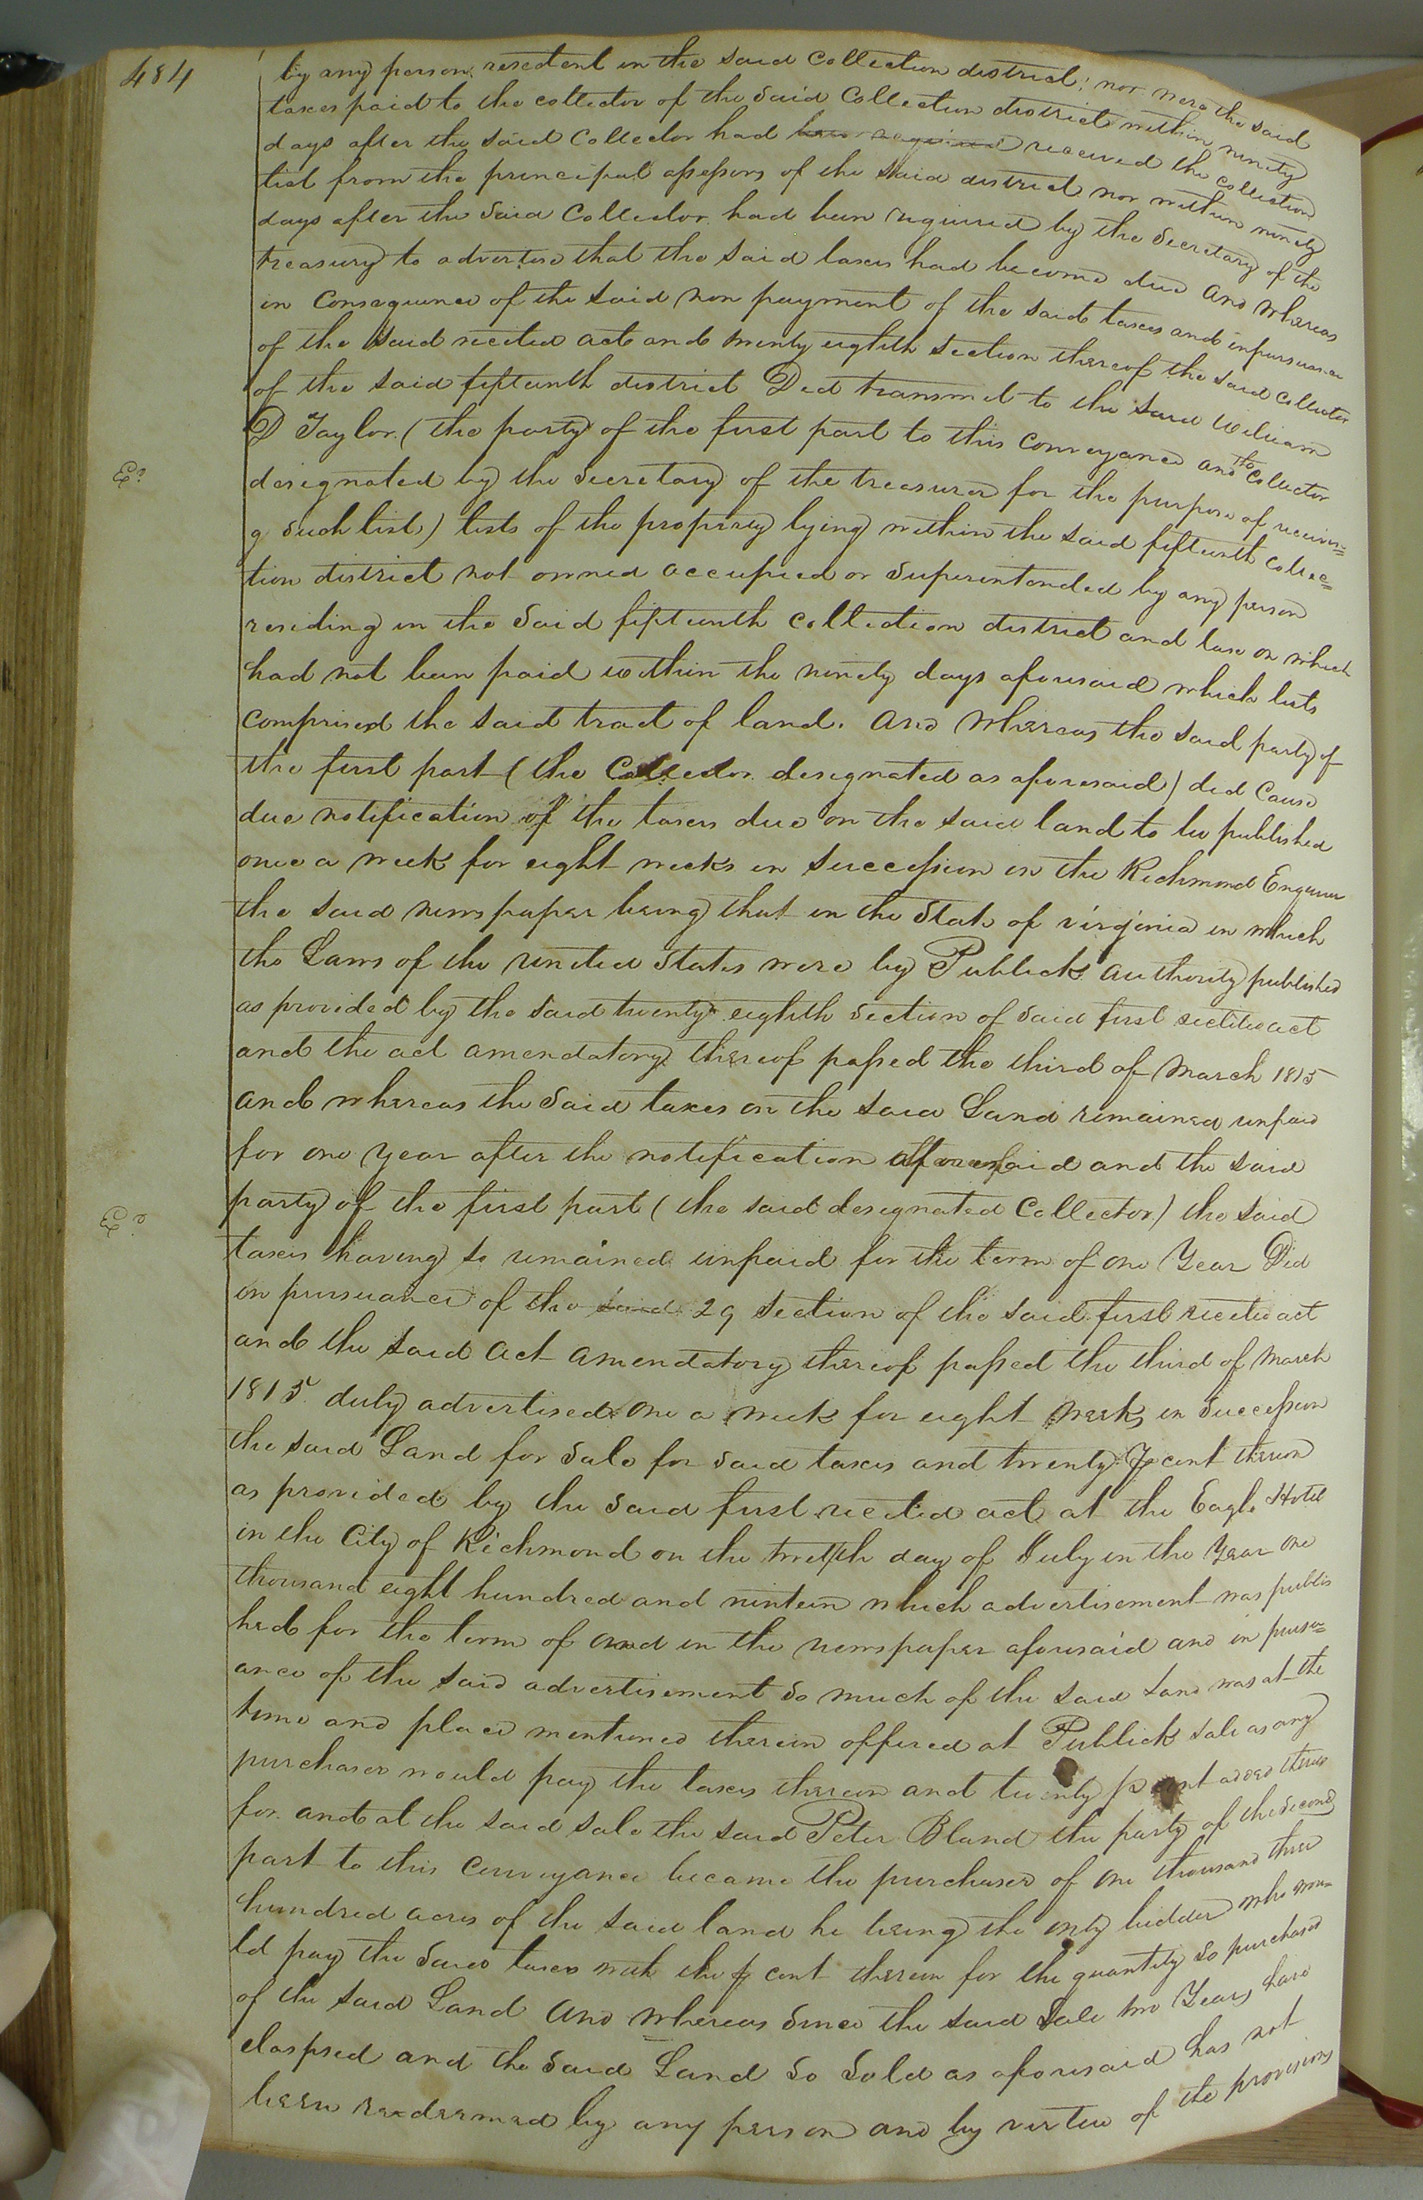 484
by any person resedent in the said Collection district; nor were the said
taxes paid to the collector of the said Collection district within ninety
days after the said Collector had been required received the collection
list from the principal assessors of the said district nor within ninety
days after the said Collector had been required by the Secretary of the
treasury to advertise that the said taxes had become due and whereas
in Consequence of the said non payment of the said taxes and inpursuance
of the said recited act and twenty eighth section thereof the said Collector
of the said fifteenth district Did transmit to the said William
D Taylor (the party of the first part to this Conveyance and the Collector
designated by the Secretary of the treasurer for the purpose of receivin=
g such lists) lists of the property lying within the said fifteenth collec=
tion district not owned occupied or Superintended by any person
residing in the said fifteenth Collection district and taxe on which
had not been paid within the ninety days aforesaid which lists
comprised the said tract of land. And Whereas the said party of
the first part (the Collector designated as aforesaid) did Cause
due notification of the taxes due on the said land to be published
once a week for eight weeks in succession in the Richmond Enquirer
the said newspaper being that in the State of virginia in which
the Laws of the united States were by Publick authority published
as provided by the said twenty eighth section of said first recited act
and the act amendatory thereof passed the third of March 1815
and whereas the said taxes on the said Land remained unpaid
for one Year after the notification aforesaid and the said
party of the first part (the said designated Collector) the said
taxes having so remained unpaid for the term of one Year Did
in pursuance of the said 29 section of the said first recited act
and the said act amendatory thereof passed the third of March
1815 duly advertised one a week for eight weeks in Succession
the said Land for Sale for said taxes and twenty P cent thereon
as provided by the said first recited act at the Eagle Hotel
in the City of Richmond on the twelfth day of July in the Year one
thousand eight hundred and ninteen which advertisement was publis
hed for the term of and in the newspaper aforesaid and in pursu=
ance of the said advertisement so much of the said Land was at the
time and place mentioned therein offered at Publick sale as any
purchaser would pay the taxes thereon and twenty p cent added there
for and at the said sale the said Peter Bland the party of the Second
part to this Conveyance became the purchaser of one thousand three
hundred acres of the said land he being the only bidder who wou=
ld pay the said taxes with the P cent thereon for the quantity so purchased
of the said Land And Whereas Since the said Sale two Years have
elaspsed and the said Land So Sold as aforesaid has not
been reedeemed by any person and by virtue of the provisions